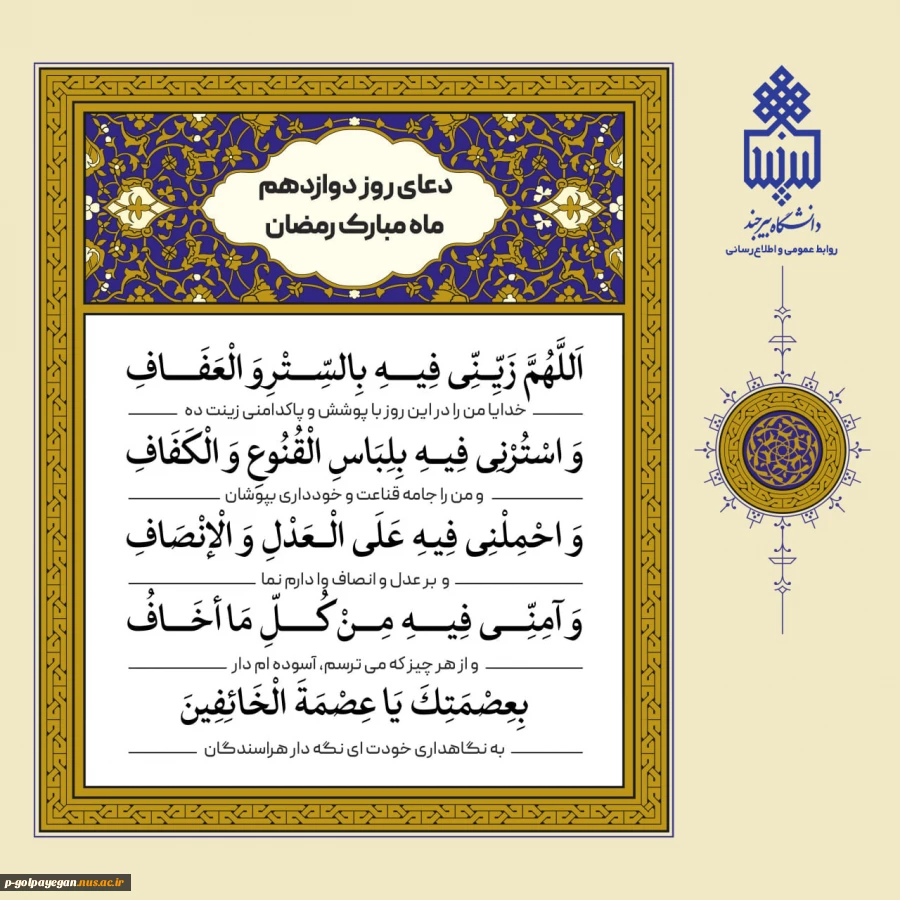 دعای روز دوازدهم
ماه مبارک رمضان
اَللَّهُمَّ زَيِّنِّي فِيهِ بِالسِّتْرِ وَ الْعَفَافِ
خدایا من را در این روز با پوشش و پاکدامنی زینت ده
وَ اسْتُرْنِي فِيهِ بِلِبَاسِ الْقُنُوعِ وَ الْكَفَافِ
و من را جامه قناعت و خودداری بپوشان
وَ احْمِلْنِي فِيهِ عَلَى الْعَدْلِ وَ الْإِنْصَافِ
و بر عدل و انصاف وا دارم نما
وَ آمِنِّي فِيهِ مِنْ كُلِّ مَا أخَافُ
و از هر چیز که می ترسم، آسوده ام دار
بِعِصْمَتِكَ يَا عِصْمَةَ الْخَائِفِينَ
به نگاهداری خودت ای نگه دار هراسندگان
دانشگاه بیرجند
روابط عمومی و اطلاع‌رسانی
p-golpayegan.nus.ac.ir